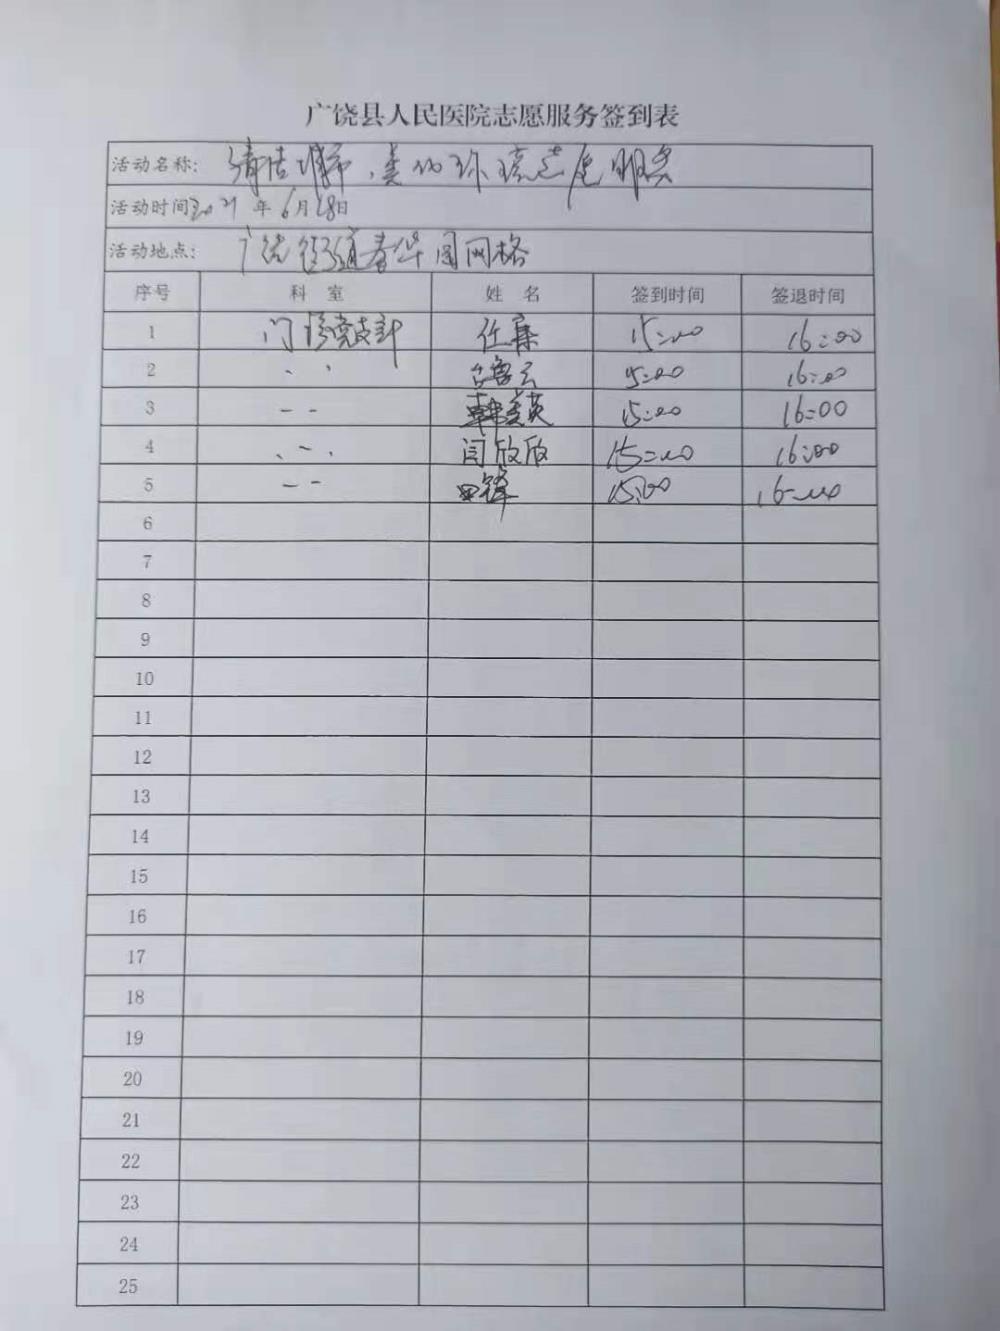 广饶县人民医院志愿服务签到表
活动名称: 清洁城市、美化环境志愿服务
活动时间2021年6月28日
活动地点: 广饶街道春华园网格
序号 科室 姓名 签到时间 签退时间
1 门诊党支部 任 15:00 16:00
2 〃 云 15:00 16:00
3 -- 韩美英 15:00 16:00
4 、-、 闫欣欣 15:00 16:00
5 -- 田锋 15:00 16:00
6
7
8
9
10
11
12
13
14
15
16
17
18
19
20
21
22
23
24
25